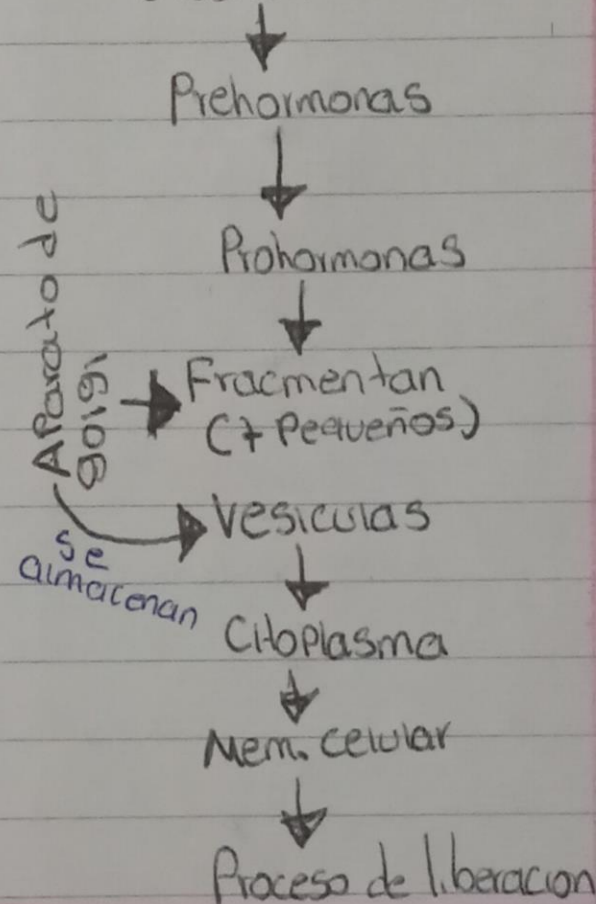 Prehormonas
Prohormonas
Aparato de
golgi
Fracmentan
(+ Pequeños)
Vesiculas
se
almacenan
Citoplasma
Mem. celular
Proceso de liberacion